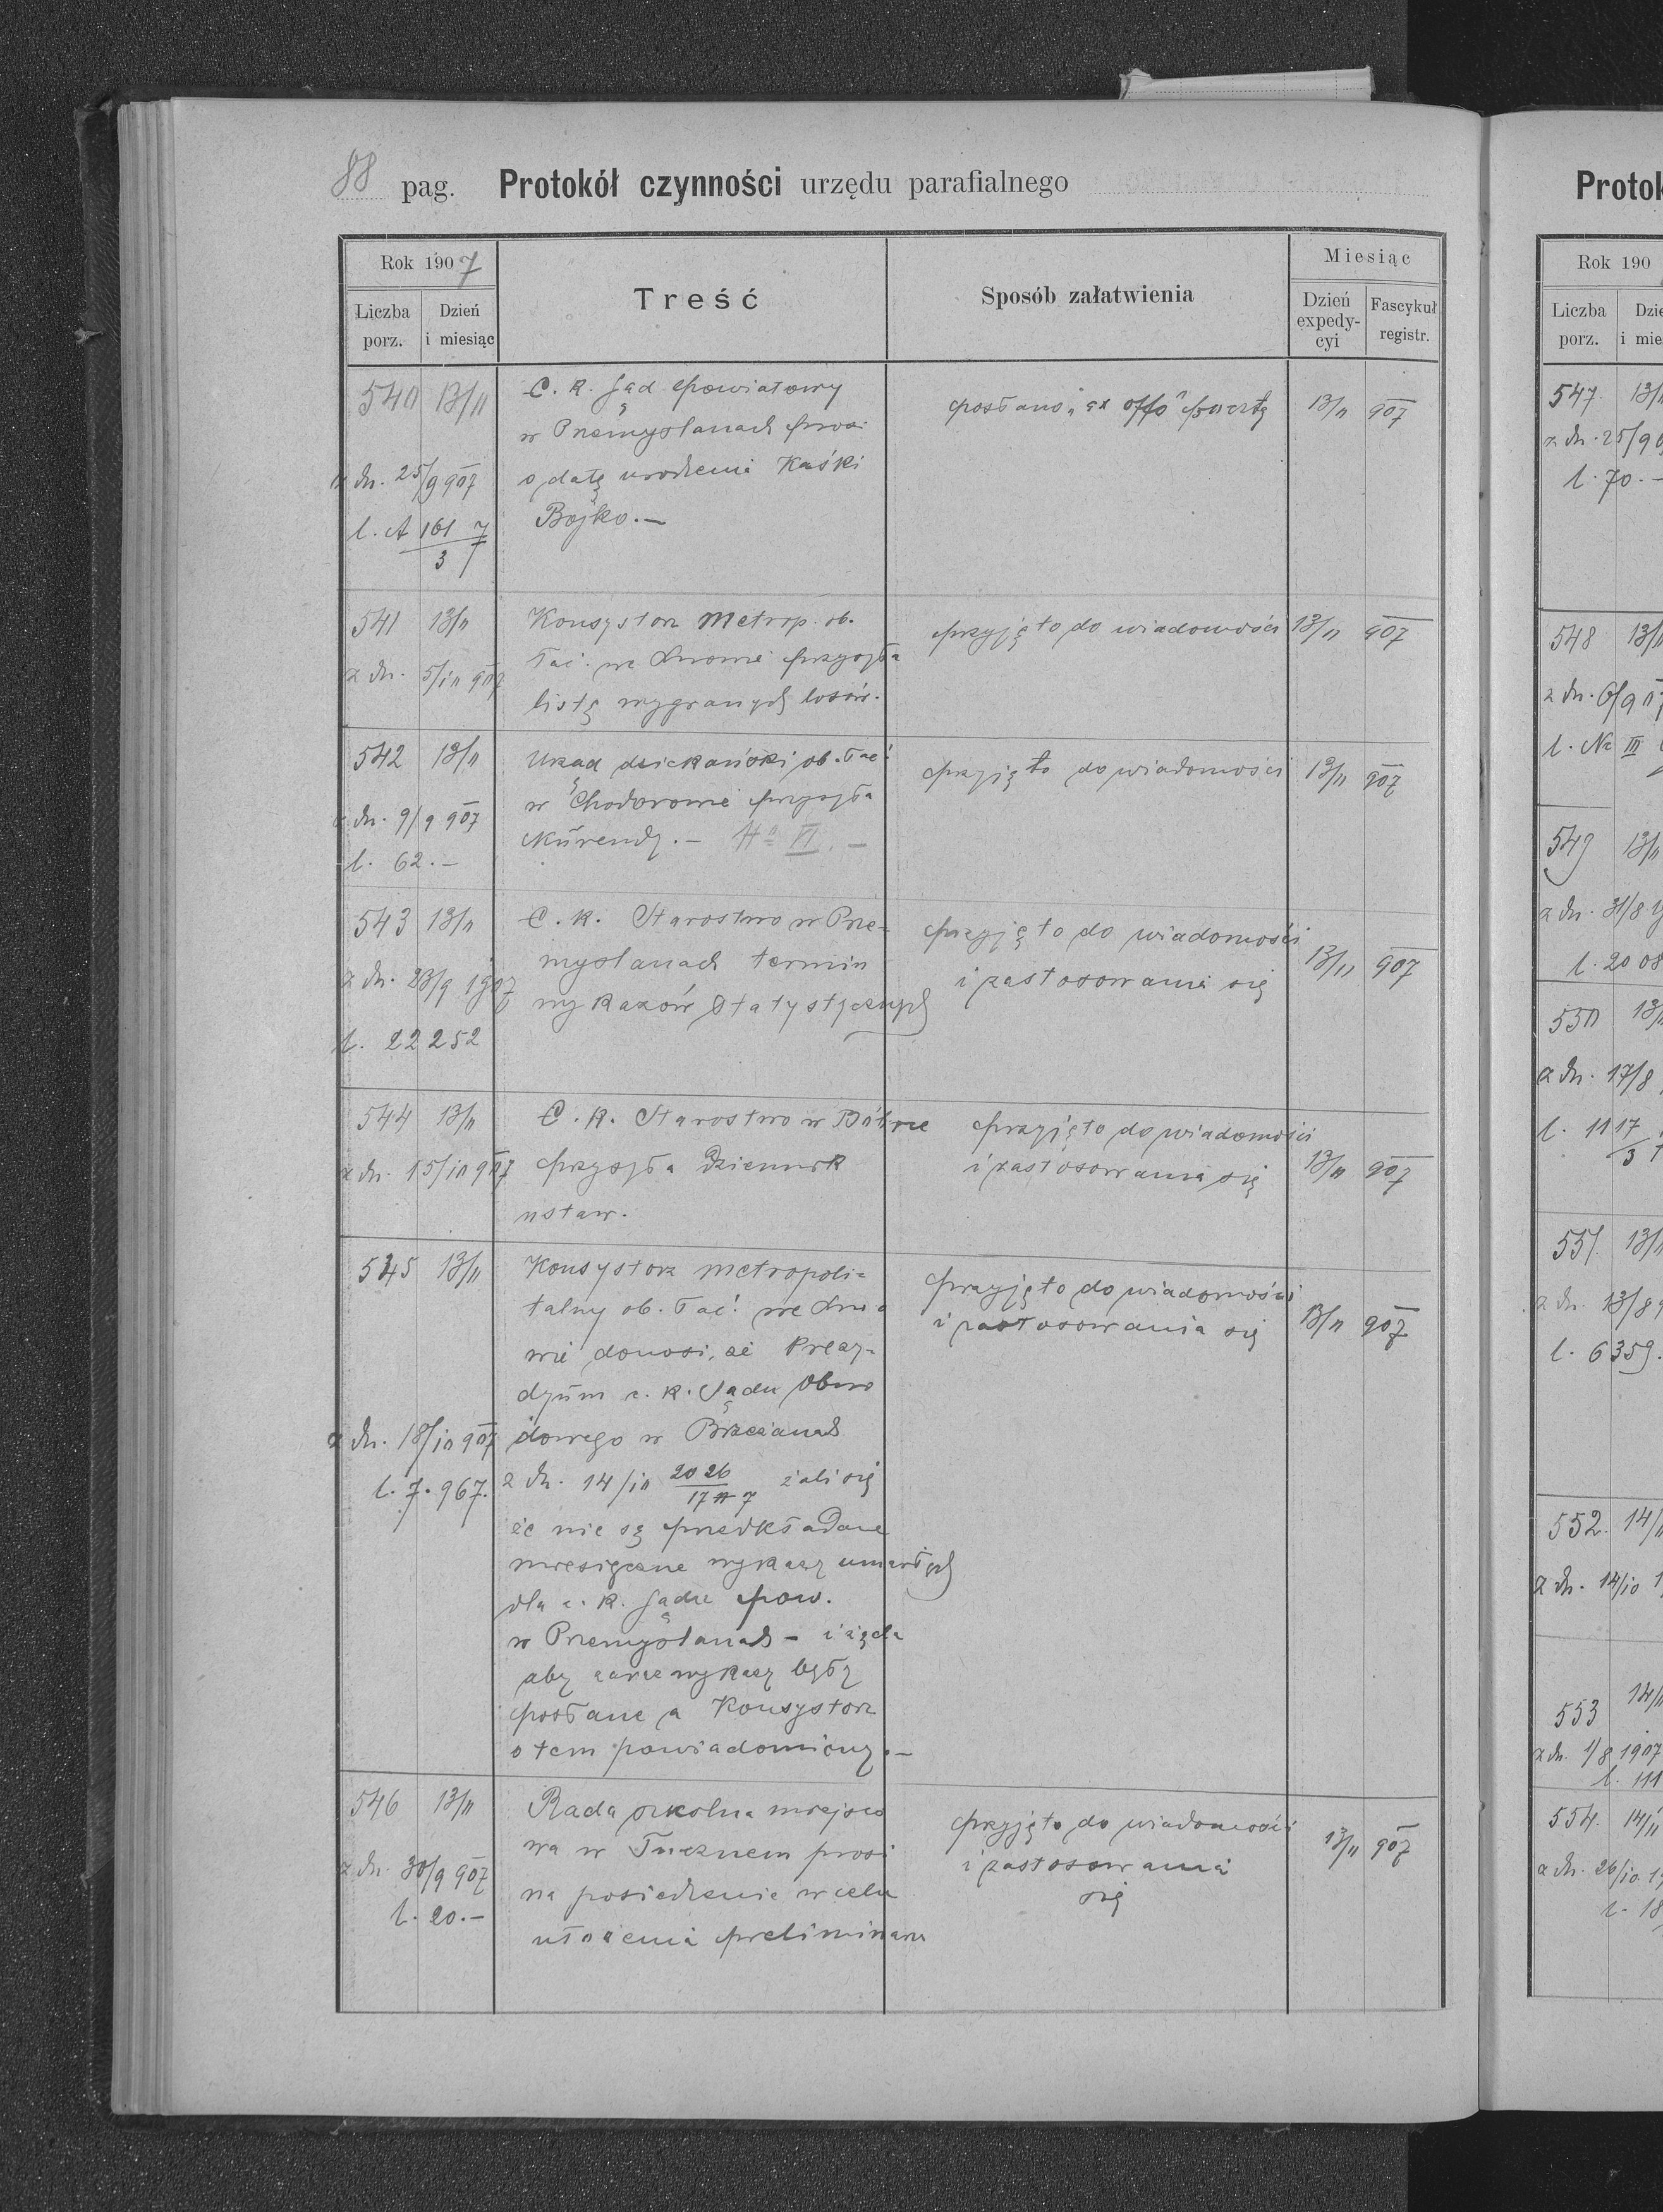 88 pag. Protokół czynności urzędu parafialnego
Rok 1907
Liczba porz.
Dzień i miesiąc
Treść
Sposób załatwienia
Miesiąc
Dzień expedycyi
Fascykuł registr.
540 13/11
C. k. Sąd powiatowy
w Przemyślanach prosi
o datę urodzenia Kaśki
Bojko.—
z dn. 25/9 907
l. A 161/3 7
posłano „ex offo"
13/11 907
541 13/11
z dn. 5/10 907
Konsystorz Metrop. ob.
łać. we Lwowie przysyła
listę wygranych losów.
przyjęto do wiadomości 13/11 907
542 13/11
z dn. 9/9 907
l. 62.—
Urząd dziekański ob. łać.
w Chodorowie przysyła
Kurendę.— No VI.—
przyjęto do wiadomości 13/11 907
543 13/11
z dn. 23/9 1907
l. 22252
C. k. Starostwo w Prze-
myślanach termin
wykazów statystycznych
przyjęto do wiadomości
i zastosowania się
13/11 907
544 13/11
z dn. 15/10 907
C. k. Starostwo w Bóbrce
przysyła Dziennik
ustaw.
przyjęto do wiadomości
i zastosowania się
13/11 907
545 13/11
z dn. 18/10 907
l. 7.967.
Konsystorz metropoli-
talny ob. łać. we Lwo
wie donosi, że Prezy-
dyum c. k. Sądu Obwo
dowego w Brzeżanach
z dn. 14/10 2026/17 7 żali się
że nie są przedkładane
miesięczne wykazy umarłych
dla c. k. Sądu pow.
w Przemyślanach – i żąda
aby wykazy były
posłane a Konsystorz
o tem powiadomiony.—
przyjęto do wiadomości
i zastosowania się
13/11 907
546 13/11
z dn. 30/9 907
l. 20.—
Rada szkolna miejsco
wa w Tucznem prosi
na posiedzenie w celu
ułożenia preliminarza
przyjęto do wiadomości
i zastosowania
się
13/11 907
Protok
Rok 190
Liczba porz.
Dzie
i mie
547. 13/11
z dn. 25/9
l. 70.—
548 13/11
z dn. 6/9
l. No III
549 13/11
z dn. 31/8
l. 2008
550 13/11
z dn. 17/8
l. 1117/3
551. 13/11
z dn. 13/8
l. 6359.
552. 14/11
z dn. 14/10
553 14/11
z dn. 1/8 1907
l. 111
554. 14/11
z dn. 26/10
l. 18